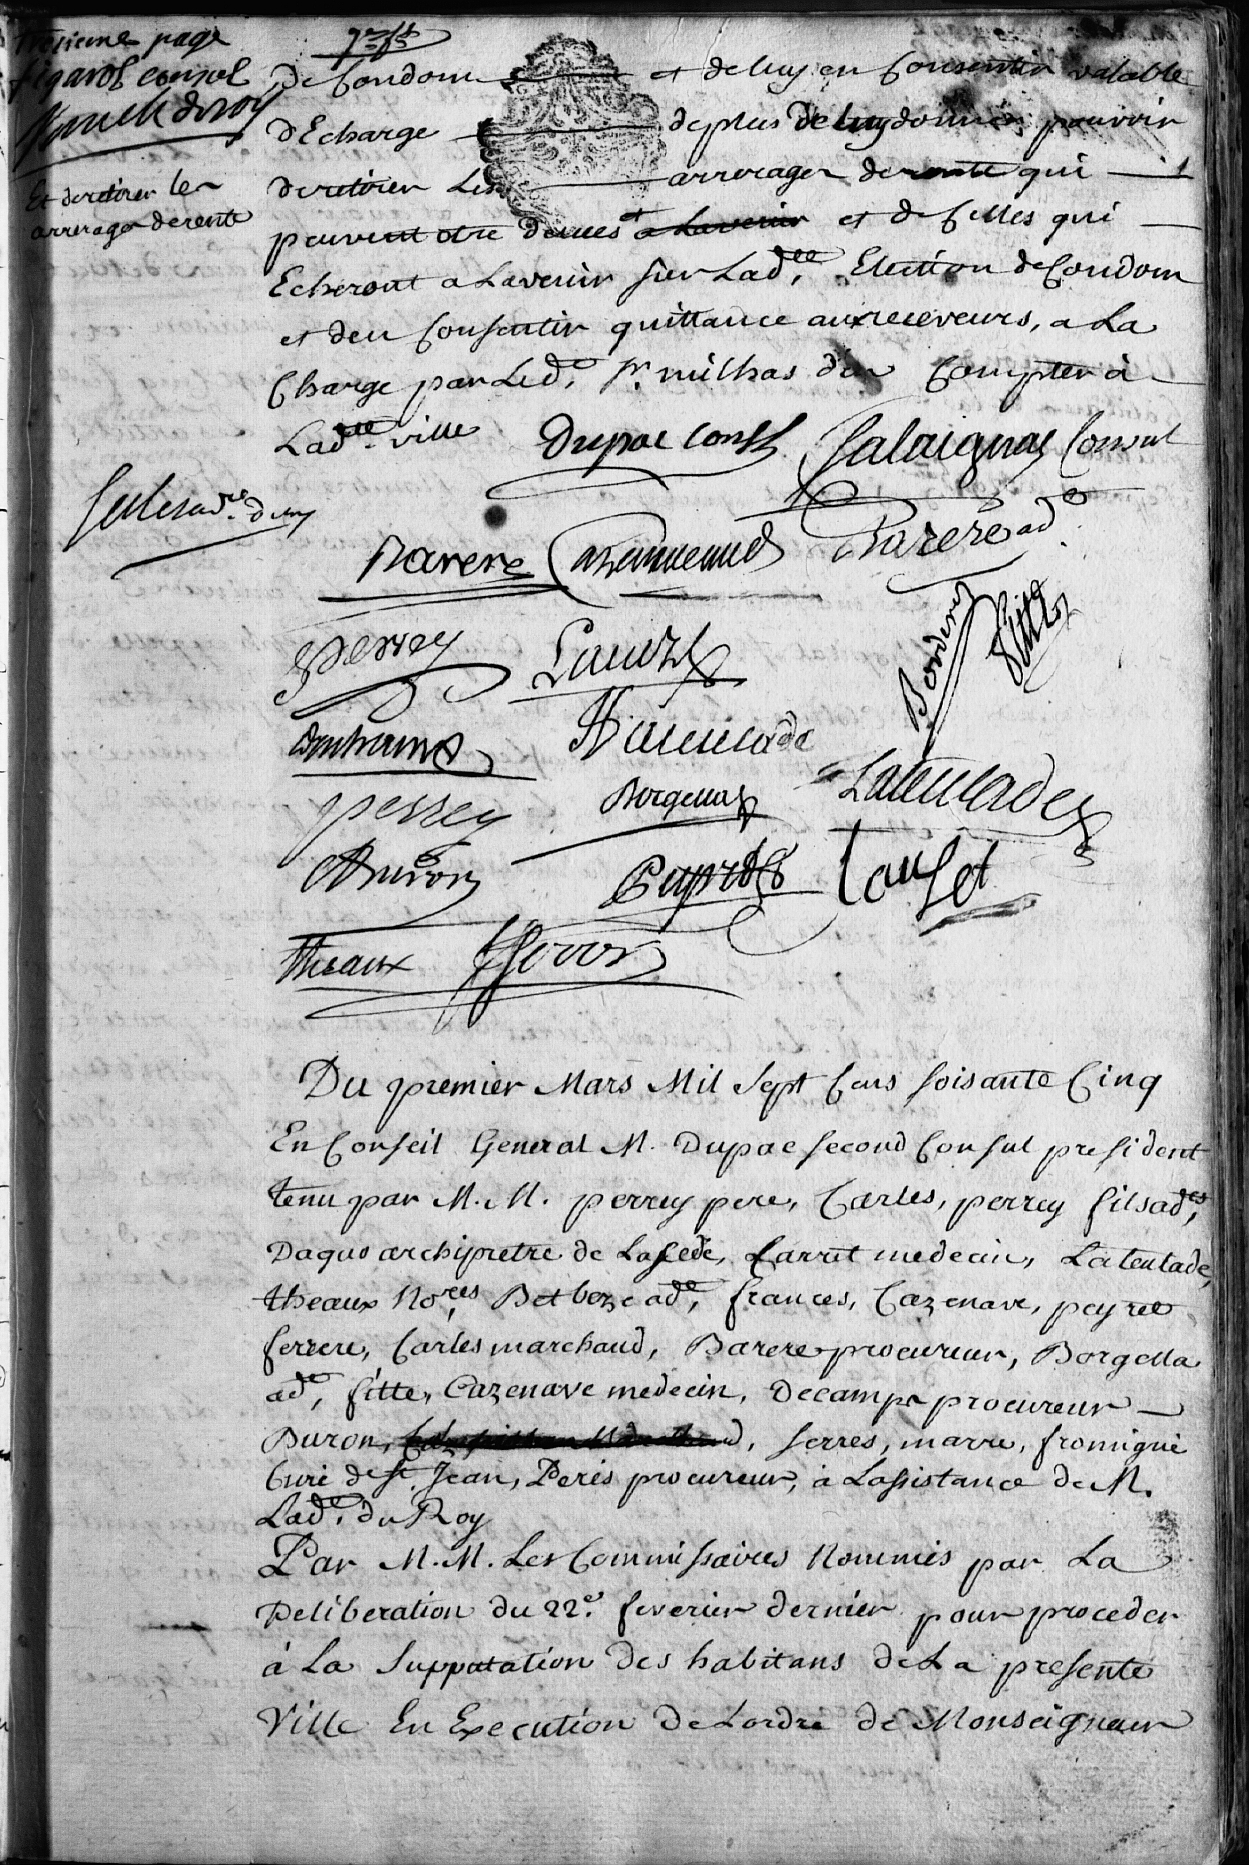 Tresieme page
figarol consul
De Condom et de luy en Consentir valable
dEcharge de plus de luy donner pouvoir
de retirer Les arrerages de rente qui
Et de retirer les
arrerages de rente
peuvent etre deues et a Lavenir et de Celles qui
Echeront a Lavenir sur Ladte. Election de Condom
et den Consentir quittance aux receveurs, a La
Charge par Ledt. Sr. milhas d'en Compter à
Ladte. ville Dupac consl Salaignac Consul
Barere Cazenneuve Barere ade.
perrey Bordenes fitte
Latentade
perrey Borgella
Buron
theaux
Du premier Mars Mil Sept Cens Soisante Cinq
En Conseil General M. Dupac second Consul president
tenu par M.M. perrey pere, Carles, perrey fils ades,
Daguo archipretre de Lasede, Larrit medecin, Latentade,
theaux Nores, Betbeze ade, frances, Cazenave, peyret
ferrere, Carles marchand, Barere procureur, Borgella
ade, fitte, Cazenave medecin, Decamps procureur
Buron, serres, marre, fromigué
Curé de St. Jean, Peres procureur, à Lassistance de M.
Lade. du Roy
Par M.M. Les Commissaires Nommés par La
Deliberation du 22e. feverier dernier pour proceder
à La Supputation des habitans de La presente
Ville En Execution de Lordre de Monseigneur